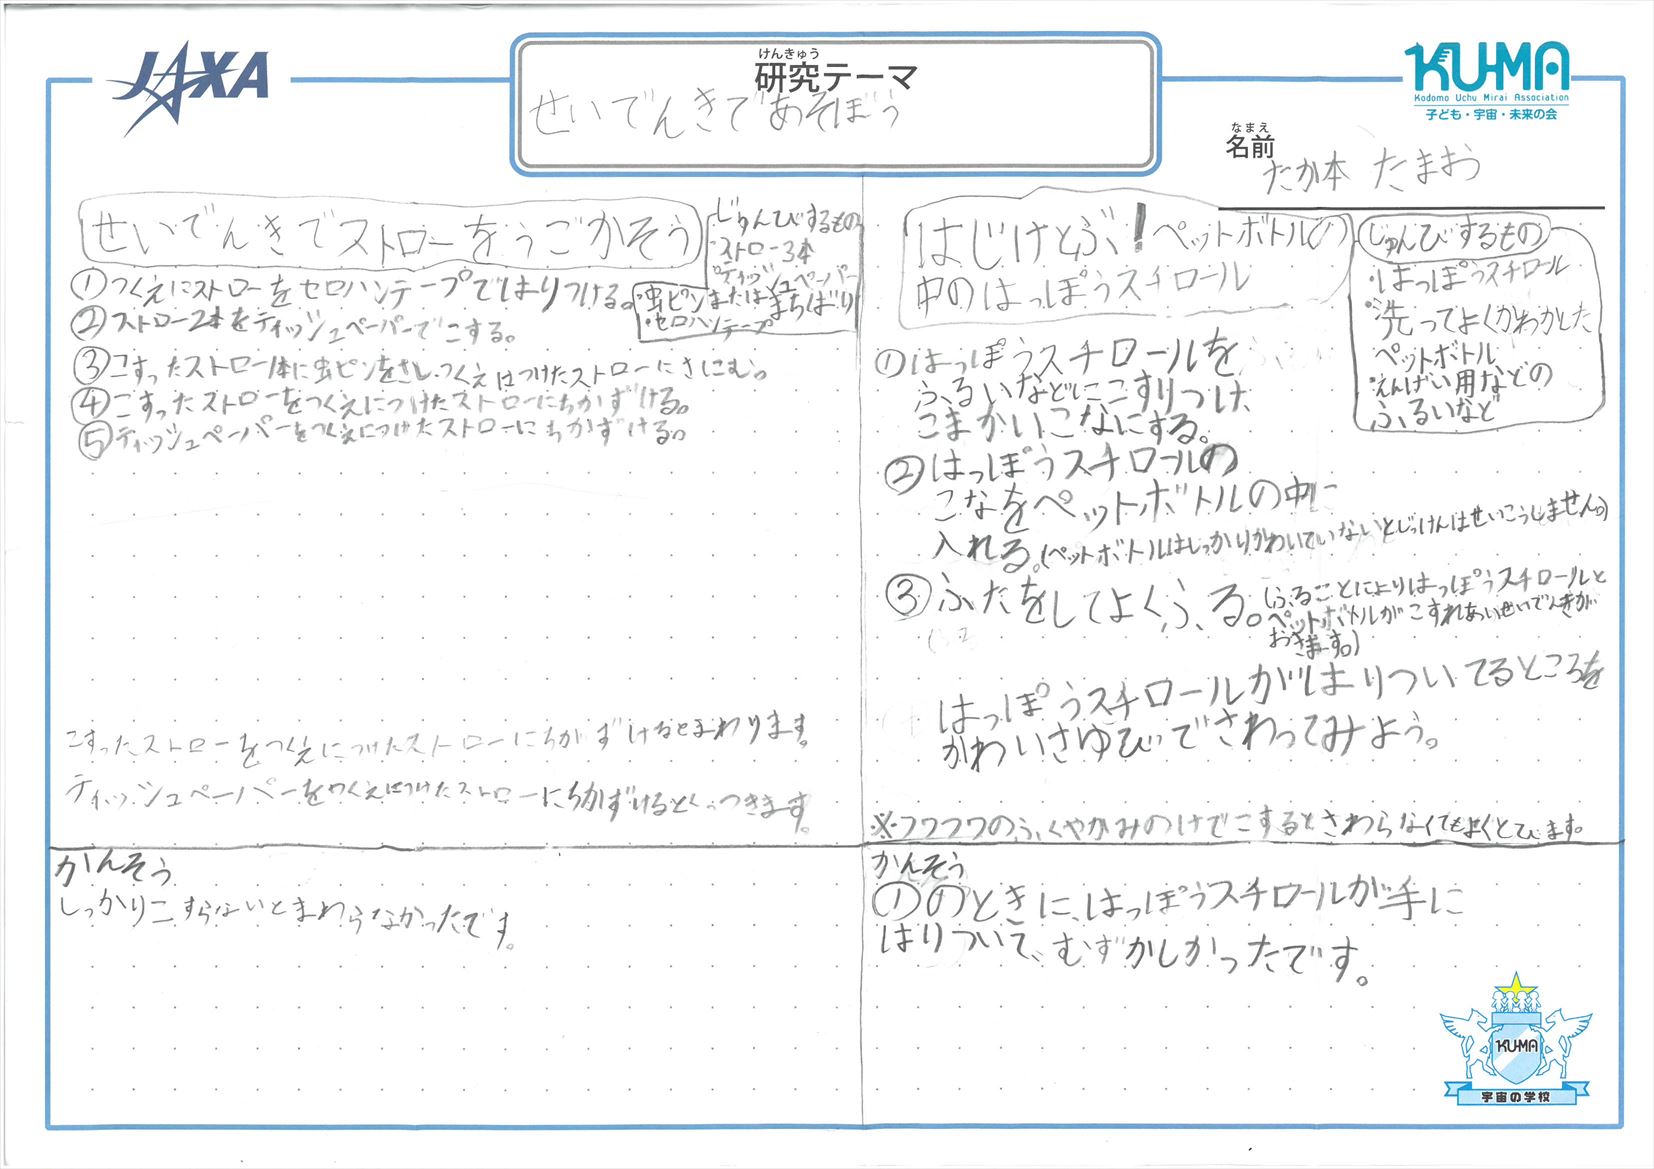 JAXA
けんきゅう
研究テーマ
せいでんきであそぼう
KU-MA
Kodomo Uchu Mirai Association
子ども・宇宙・未来の会
なまえ
名前
たか本 たまおう
せいでんきでストローをうごかそう
じゅんびするもの
・ストロー3本
・ティッシュペーパー
・虫ピンまたはまちばり
・セロハンテープ
①つくえにストローをセロハンテープではりつける。
②ストロー2本をティッシュペーパーでこする。
③こすったストロー1本に虫ピンをさし、つくえはつけたストローにさにむ。
④こすったストローをつくえにつけたストローにちかずける。
⑤ティッシュペーパーをつくえにつけたストローにちかずける。
こすったストローをつくえにつけたストローにちかずけるとまわります。
ティッシュペーパーをつくえにつけたストローにちかずけるとくっつきます。
かんそう
しっかりこすらないとまわらなかったです。
はじけとぶ!ペットボトルの
中のはっぽうスチロール
じゅんびするもの
・はっぽうスチロール
・洗ってよくかわかした
ペットボトル
・えんげい用などの
ふるいなど
①はっぽうスチロールを
ふるいなどにこすりつけ、
こまかいこなにする。
②はっぽうスチロールの
こなをペットボトルの中に
入れる。(ペットボトルはしっかりかわいていないとじっけんはせいこうしません。)
③ふたをしてよくふる。(ふることによりはっぽうスチロールと
ペットボトルがこすれあいせいでんきが
おきます。)
はっぽうスチロールがはりついてるところを
かわいさゆびでさわってみよう。
※フワフワのふくやかみのけでこするとさわらなくてもよくとびます。
かんそう
①のときに、はっぽうスチロールが手に
はりついて、むずかしかったです。
KU-MA
宇宙の学校